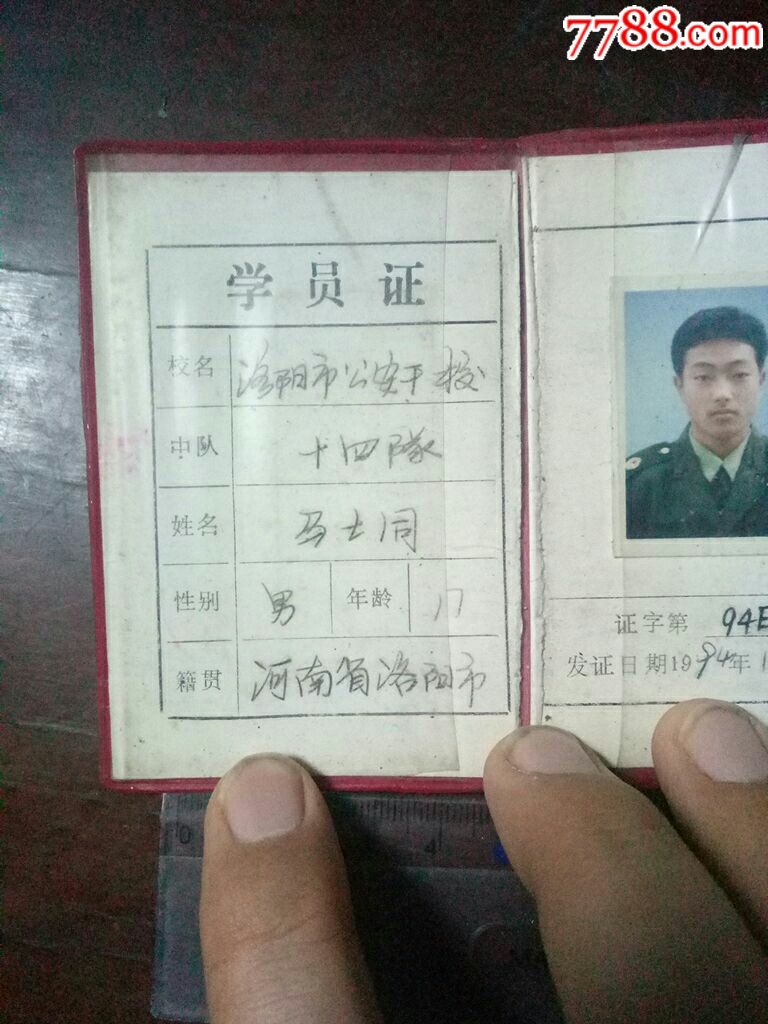 7788.com
学员证
校名 洛阳市公安干校
中队 十四隊
姓名 马士同
性别 男 年龄 17
籍贯 河南省洛阳市
证字第 94
发证日期1994年1
0 4